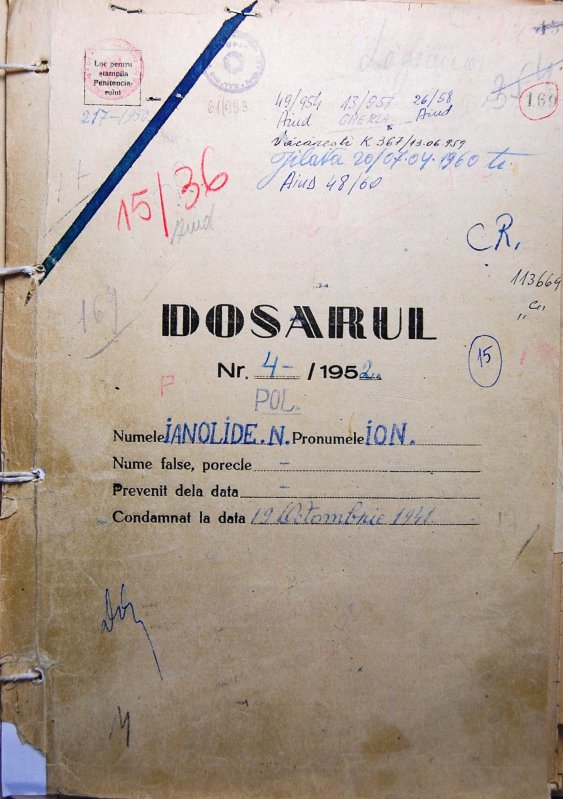 Loc pentru
stampila
Penitencia-
rului
Legionar
169
61/953
49/954 13/957 26/58
Aiud GHERLA Aiud
Văcărești K 367/13.06.959
Jilava 20/07.04.1960
Aiud 48/60
15/36
Aiud
CR.
113664
"C"
169
DOSARUL
Nr. 4- /1952.
15
F
POL.
Numele IANOLIDE.N. Pronumele ION.
Nume false, porecle -
Prevenit dela data -
Condamnat la data 19 Octombrie 1941.